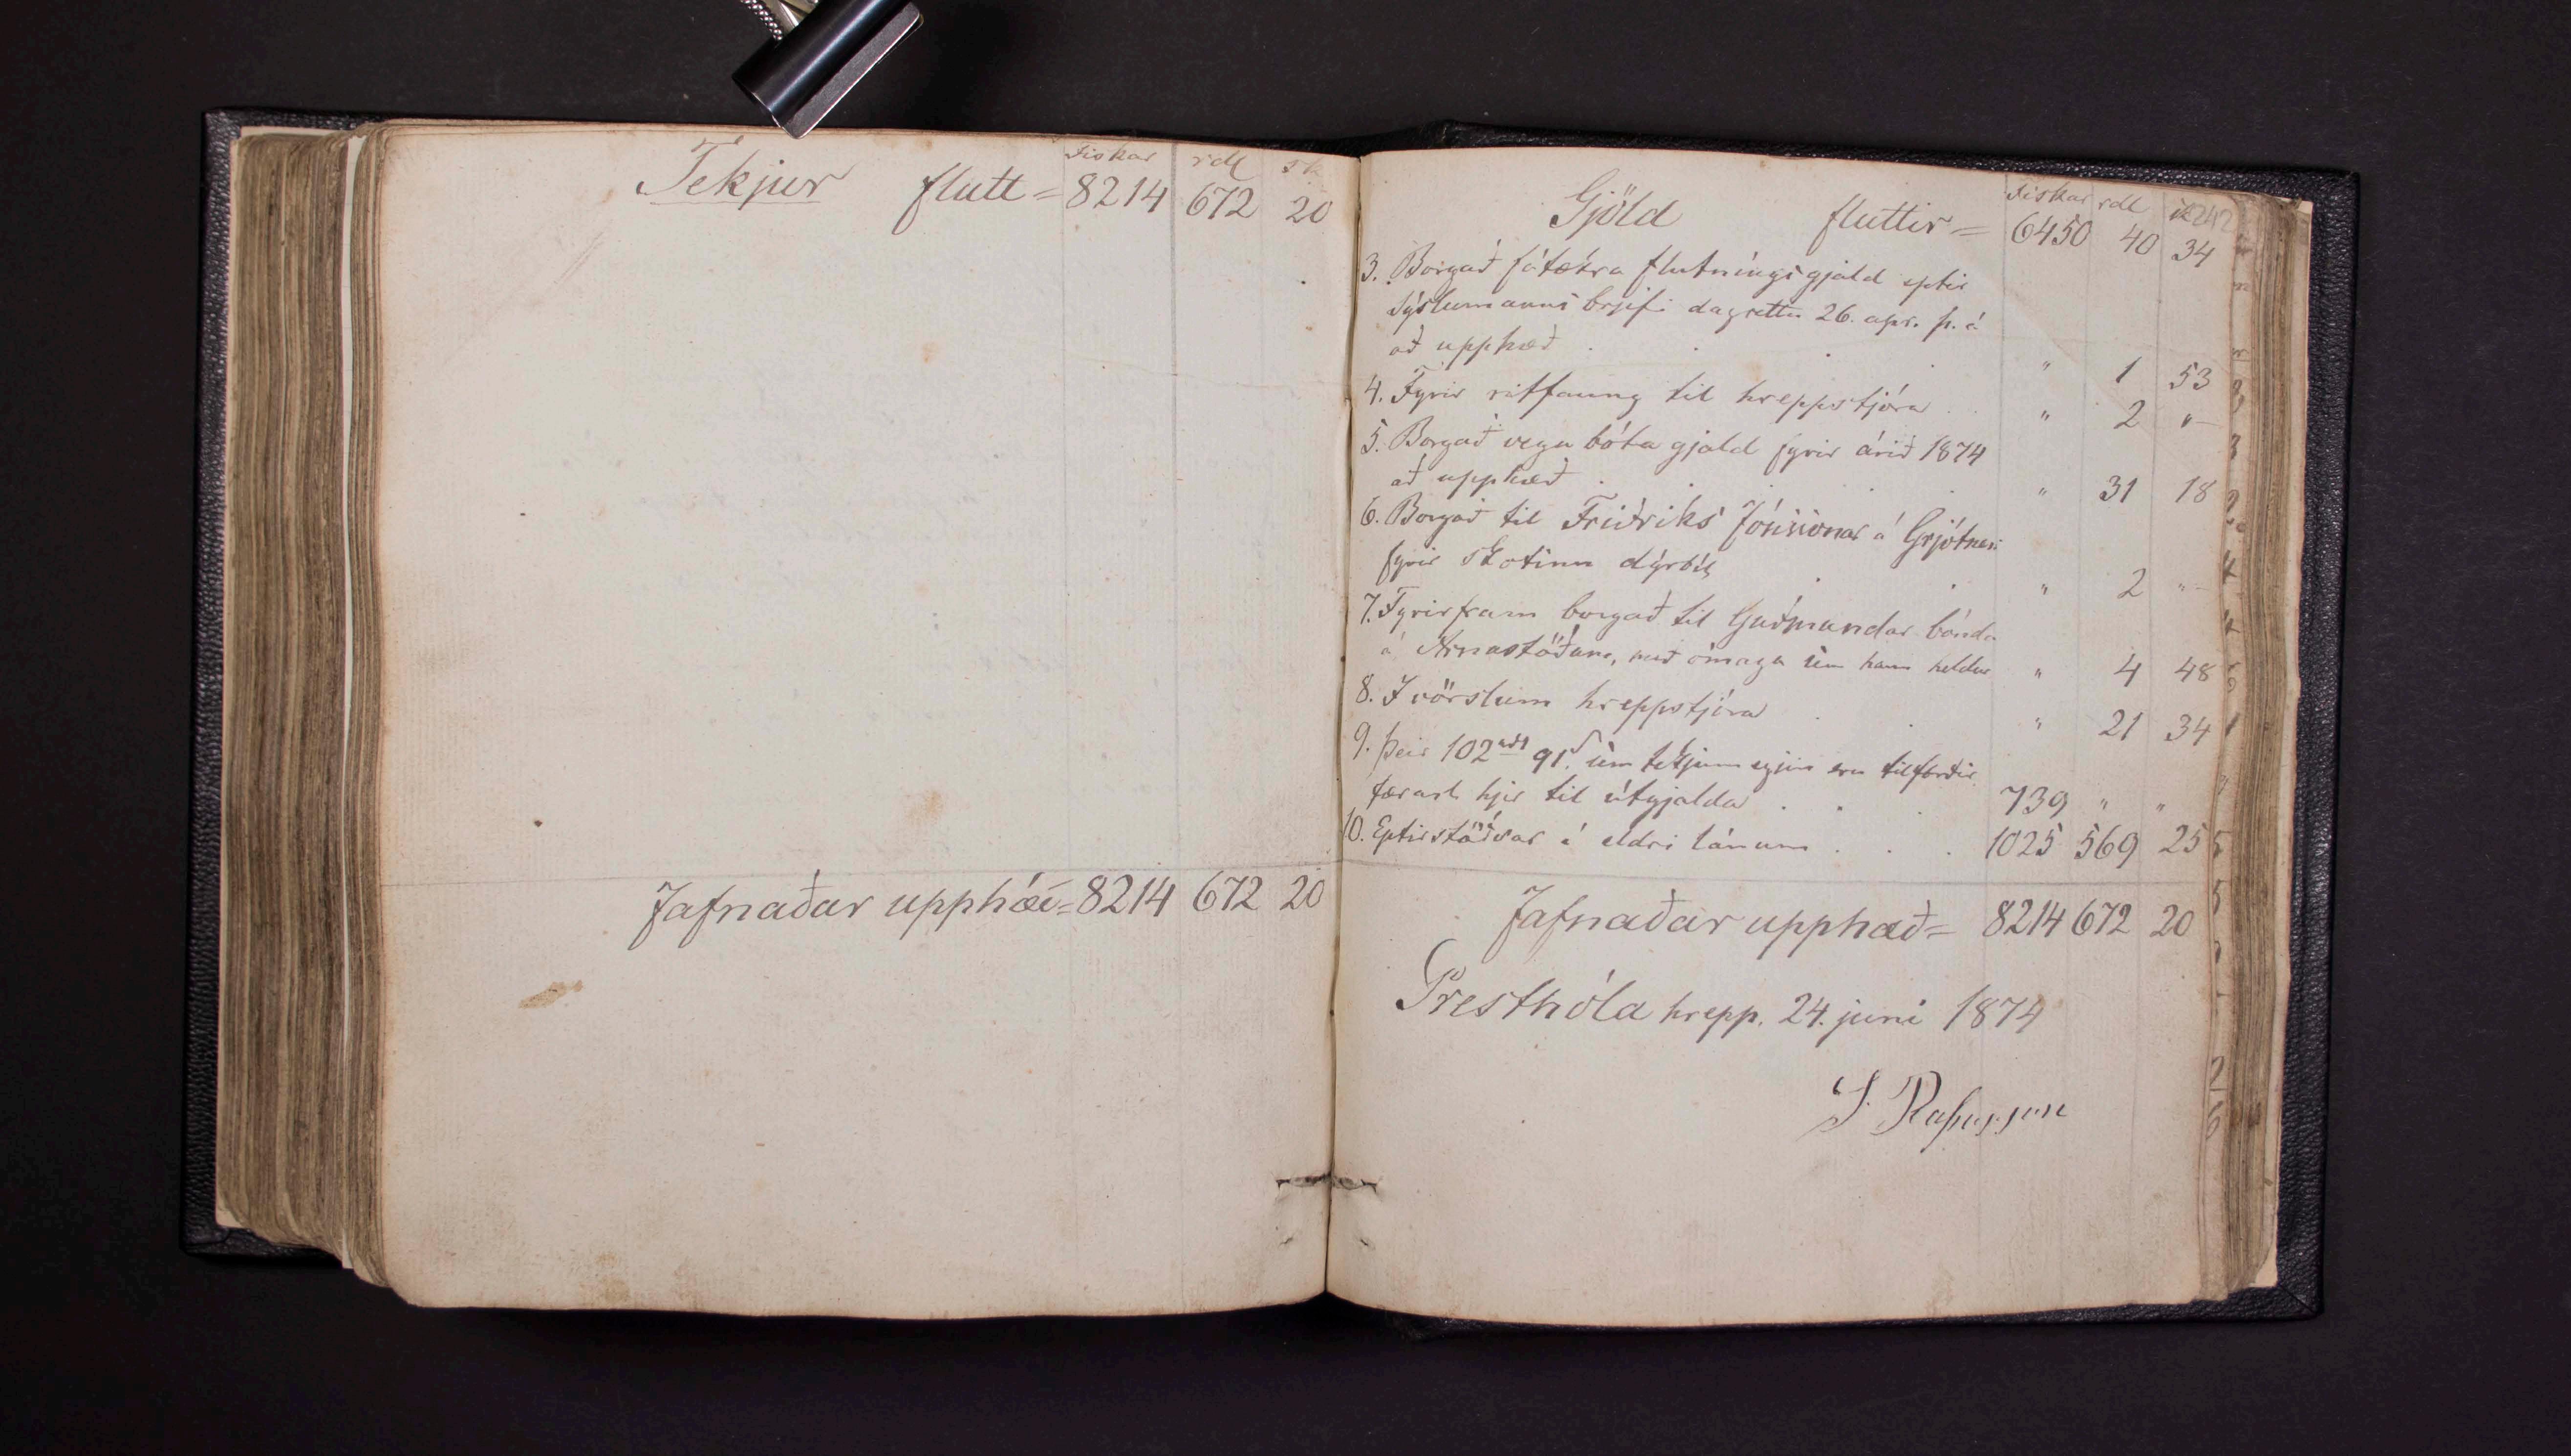 Fiskar rdl sk
Tekjur flutt = 8214 672 20
Jafnaðar upphæð = 8214 672 20
Fiskar rdl sk 242
Gjöld fluttir = 6450 40 34
3. Borgað fátækra flutníngsgjald eptir
sýslumanns brjefi dagsettu 26. apr. þ. á
að upphæð . . . " 1 53
4. Fyrir ritfaung til hreppstjóra . . " 2 "
5. Borgað vegabóta gjald fyrir árið 1874
að upphæð . . . . " 31 18
6. Borgað til Friðriks Jónssonar á Grjótnesi
fyrir skotinn dýrbít . . " 2 "
7. Fyrirfram borgað til Guðmundar bónda
á Arnastöðum, með ómaga sem hann heldur " 4 48
8. Í vörslum hreppstjóra . . " 21 34
9. Þeir 102 rdl 91 s. sem tekjum eru tilfærðir
færast hjer til útgjalda . . . 739 " "
10. Eptirstöðvar á eldri lánum . . . 1025 569 25
Jafnaðar upphæð = 8214 672 20
Presthóla hrepp. 24. juni 1874
S. Rafnsson